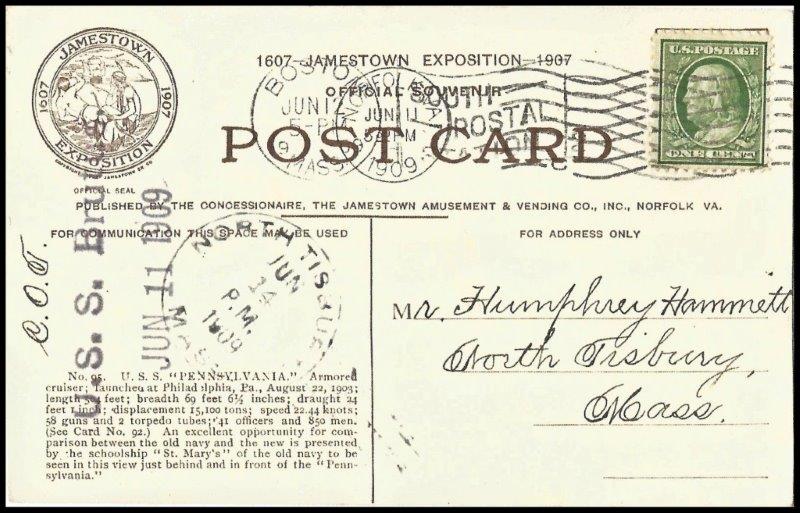 JAMESTOWN
1607
1907
EXPOSITION
OFFICIAL SEAL
1607—JAMESTOWN EXPOSITION—1907
OFFICIAL SOUVENIR
POST CARD
U.S. POSTAGE
BOSTON
JUN 12
MASS.
NORFOLK, VA.
JUN 11
1909
PUBLISHED BY THE CONCESSIONAIRE, THE JAMESTOWN AMUSEMENT & VENDING CO., INC., NORFOLK VA.
FOR COMMUNICATION THIS SPACE MAY BE USED
FOR ADDRESS ONLY
C.O.T.
U. S. S.
JUN 11 1909
NORTH TISBURY
JUN
14
P.M.
1909
MASS.
Mr. Humphrey Hammett
North Tisbury,
Mass.
No. 95. U. S. S. "PENNSYLVANIA." Armored
cruiser; launched at Philadelphia, Pa., August 22, 1903;
length feet; breadth 69 feet 6½ inches; draught 24
feet 1 inch; displacement 15,100 tons; speed 22.44 knots;
58 guns and 2 torpedo tubes; 41 officers and 850 men.
(See Card No. 92.) An excellent opportunity for com-
parison between the old navy and the new is presented
by the schoolship "St. Mary's" of the old navy to be
seen in this view just behind and in front of the "Penn-
sylvania."